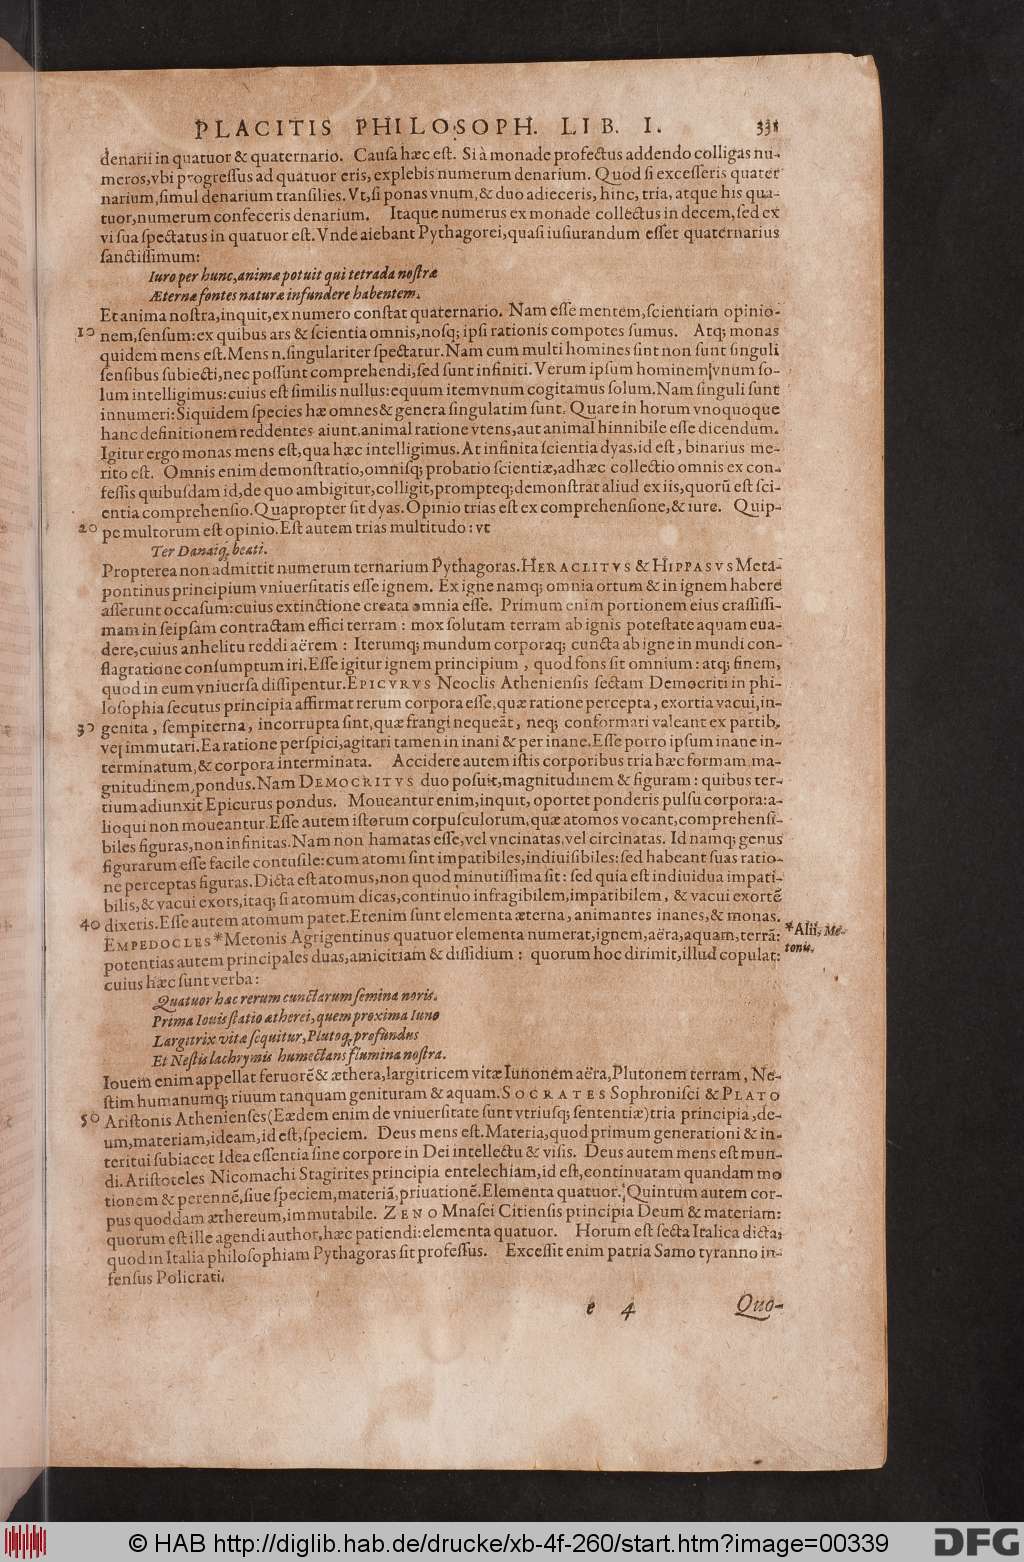 PLACITIS PHILOSOPH. LIB. I. 331
denarii in quatuor & quaternario. Causa hæc est. Si à monade profectus addendo colligas nu-
meros, vbi progressus ad quatuor eris, explebis numerum denarium. Quod si excesseris quater
narium, simul denarium transilies. Vt, si ponas vnum, & duo adieceris, hinc, tria, atque his qua-
tuor, numerum confeceris denarium. Itaque numerus ex monade collectus in decem, sed ex
vi sua spectatus in quatuor est. Vnde aiebant Pythagorei, quasi iusiurandum esset quaternarius
sanctissimum:
Iuro per hunc, animæ potuit qui tetrada nostræ
Æternæ fontes naturæ infundere habentem.
Et anima nostra, inquit, ex numero constat quaternario. Nam esse mentem, scientiam opinio-
10 nem, sensum: ex quibus ars & scientia omnis, nosq; ipsi rationis compotes sumus. Atq; monas
quidem mens est. Mens n. singulariter spectatur. Nam cum multi homines sint non sunt singuli
sensibus subiecti, nec possunt comprehendi, sed sunt infiniti. Verum ipsum hominem vnum so-
lum intelligimus: cuius est similis nullus: equum item vnum cogitamus solum. Nam singuli sunt
innumeri: Siquidem species hæ omnes & genera singulatim sunt. Quare in horum vnoquoque
hanc definitionem reddentes aiunt. animal ratione vtens, aut animal hinnibile esse dicendum.
Igitur ergo monas mens est, qua hæc intelligimus. At infinita scientia dyas, id est, binarius me-
rito est. Omnis enim demonstratio, omnisq; probatio scientiæ, adhæc collectio omnis ex con-
fessis quibusdam id, de quo ambigitur, colligit, prompteq; demonstrat aliud ex iis, quorū est sci-
entia comprehensio. Quapropter sit dyas. Opinio trias est ex comprehensione, & iure. Quip-
20 pe multorum est opinio. Est autem trias multitudo: vt
Ter Danaiq; beati.
Propterea non admittit numerum ternarium Pythagoras. HERACLITVS & HIPPASVS Meta-
pontinus principium vniuersitatis esse ignem. Ex igne namq; omnia ortum & in ignem habere
asserunt occasum: cuius extinctione creata omnia esse. Primum enim portionem eius crassissi-
mam in seipsam contractam effici terram: mox solutam terram ab ignis potestate aquam eua-
dere, cuius anhelitu reddi aërem: Iterumq; mundum corporaq; cuncta ab igne in mundi con-
flagratione consumptum iri. Esse igitur ignem principium, quod fons sit omnium: atq; finem,
quod in eum vniuersa dissipentur. EPICVRVS Neoclis Atheniensis sectam Democriti in phi-
losophia secutus principia affirmat rerum corpora esse, quæ ratione percepta, exortia vacui, in-
30 genita, sempiterna, incorrupta sint, quæ frangi nequeāt, neq; conformari valeant ex partib,
vel immutari. Ea ratione perspici, agitari tamen in inani & per inane. Esse porro ipsum inane in-
terminatum, & corpora interminata. Accidere autem istis corporibus tria hæc formam, ma-
gnitudinem, pondus. Nam DEMOCRITVS duo posuit, magnitudinem & figuram: quibus ter-
tium adiunxit Epicurus pondus. Moueantur enim, inquit, oportet ponderis pulsu corpora: a-
lioqui non moueantur. Esse autem istorum corpusculorum, quæ atomos vocant, comprehensi-
biles figuras, non infinitas. Nam non hamatas esse, vel vncinatas, vel circinatas. Id namq; genus
figurarum esse facile contusile: cum atomi sint impatibiles, indiuisibiles: sed habeant suas ratio-
ne perceptas figuras. Dicta est atomus, non quod minutissima sit: sed quia est indiuidua impati-
bilis, & vacui exors, itaq; si atomum dicas, continuo infragibilem, impatibilem, & vacui exortē
40 dixeris. Esse autem atomum patet. Etenim sunt elementa æterna, animantes inanes, & monas.
EMPEDOCLES * Metonis Agrigentinus quatuor elementa numerat, ignem, aëra, aquam, terrā:
* Alii, Me-
tonis.
potentias autem principales duas, amicitiam & dissidium: quorum hoc dirimit, illud copulat:
cuius hæc sunt verba:
Quatuor hac rerum cunctarum semina noris.
Prima Iouis statio ætherei, quem proxima Iuno
Largitrix vitæ sequitur, Plutoq; profundus
Et Nestis lachrymis humectans flumina nostra.
Iouem enim appellat feruorē & æthera, largitricem vitæ Iunonem aëra, Plutonem terram, Ne-
stim humanumq; riuum tanquam genituram & aquam. SOCRATES Sophronisci & PLATO
50 Aristonis Athenienses (Eædem enim de vniuersitate sunt vtriusq; sententiæ) tria principia, de-
um, materiam, ideam, id est, speciem. Deus mens est. Materia, quod primum generationi & in-
teritui subiacet Idea essentia sine corpore in Dei intellectu & visis. Deus autem mens est mun-
di. Aristoteles Nicomachi Stagirites principia entelechiam, id est, continuatam quandam mo
tionem & perennē, siue speciem, materiā, priuationē. Elementa quatuor. Quintum autem cor-
pus quoddam æthereum, immutabile. ZENO Mnasei Citiensis principia Deum & materiam:
quorum est ille agendi author, hæc patiendi: elementa quatuor. Horum est secta Italica dicta,
quod in Italia philosophiam Pythagoras sit professus. Excessit enim patria Samo tyranno in-
fensus Policrati.
e 4 Quo-
© HAB http://diglib.hab.de/drucke/xb-4f-260/start.htm?image=00339
DFG